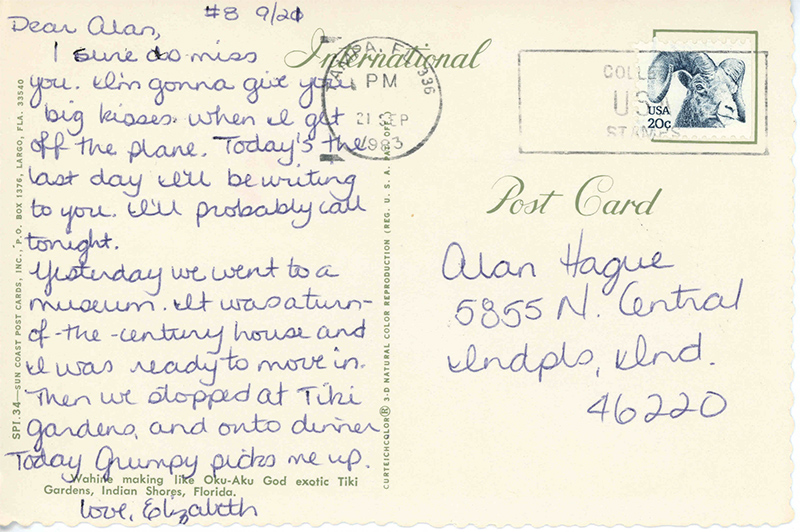 #8 9/20
Dear Alan,
I sure do miss
you. I'm gonna give you
big kisses when I get
off the plane. Today's the
last day I'll be writing
to you. I'll probably call
tonight.
Yesterday we went to a
museum. It was a turn-
of-the-century house and
I was ready to move in.
Then we stopped at Tiki
Gardens, and onto dinner
Today Grumpy picks me up.
Love, Elizabeth
Wahine making like Oku-Aku God exotic Tiki
Gardens, Indian Shores, Florida.
SPI.34—SUN COAST POST CARDS, INC., P.O. BOX 1376, LARGO, FLA. 33540
CURTEICHCOLOR® 3-D NATURAL COLOR REPRODUCTION (REG. U.S.A. PAT. OFF.)
International
TAMPA, FL 336
PM
21 SEP
1983
COLLE
US
STAMPS
USA
20c
Post Card
Alan Hague
5855 N. Central
Indpls, Ind.
46220